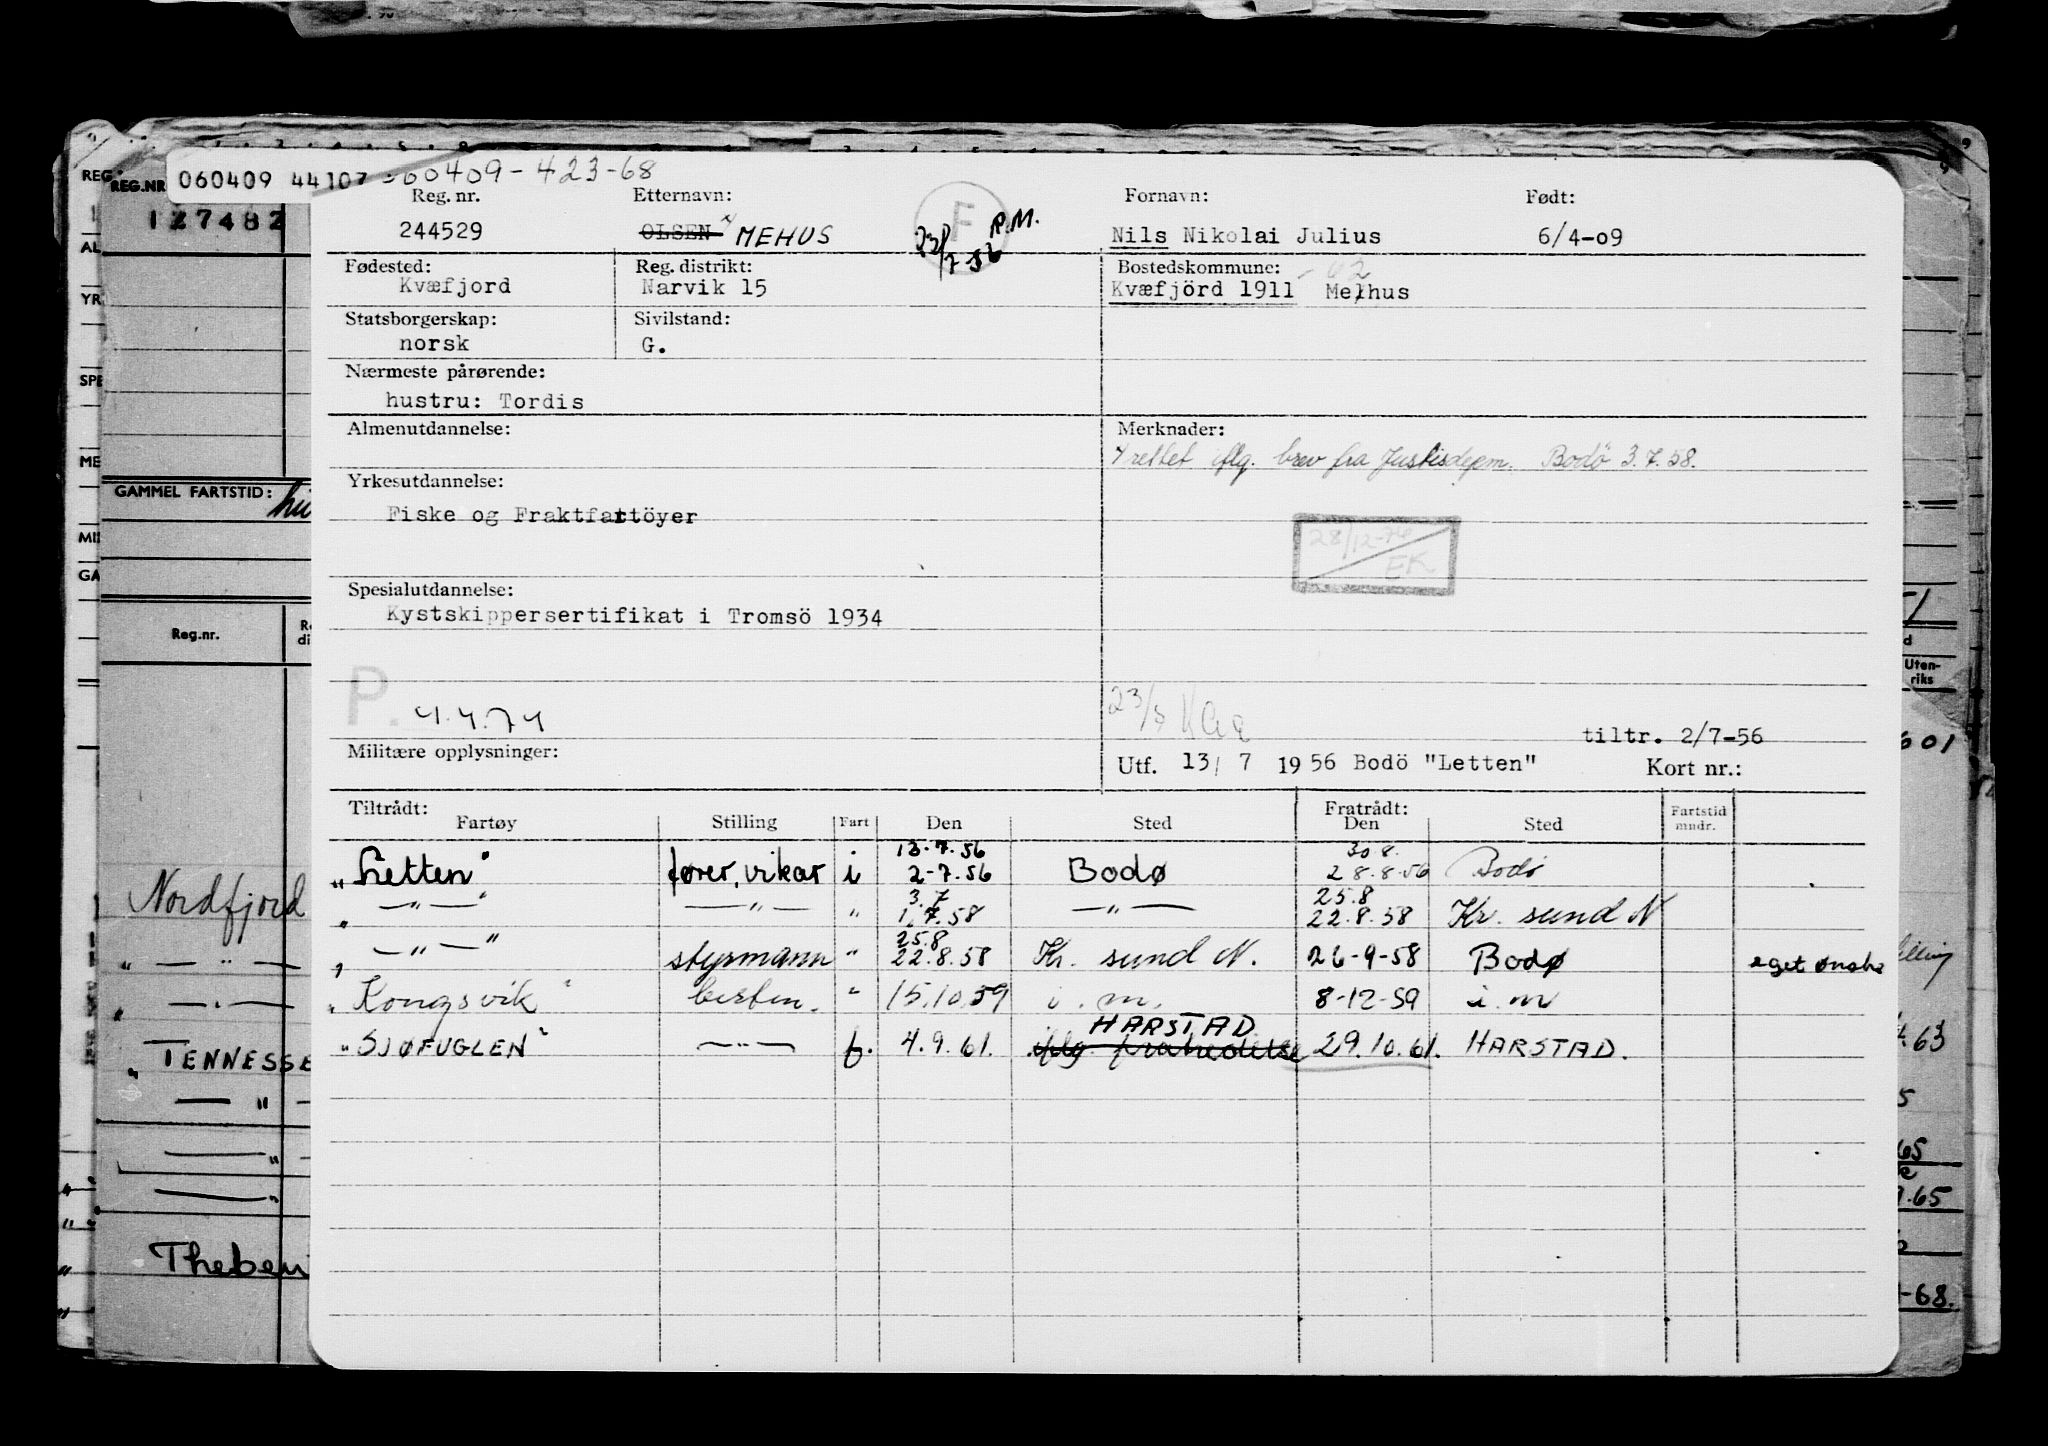 REG.NR 060409 44107 060409-423-68
127482
Reg. nr. Etternavn: F Fornavn: Født:
244529 OLSEN x MEHUS 23/7 56 R.M. Nils Nikolai Julius 6/4-09
Fødested: Reg. distrikt: Bostedskommune:
Kvæfjord Narvik 15 Kvæfjörd 1911 Mehus
Statsborgerskap: Sivilstand:
norsk G.
Nærmeste pårørende:
hustru: Tordis
Almenutdannelse: Merknader:
x rettet iflg. brev fra Justisdepm. Bodö 3.7.58.
Yrkesutdannelse:
GAMMEL FARTSTID:
Fiske og Fraktfartöyer
28/12-74
EK
Spesialutdannelse:
Kystskippersertifikat i Tromsö 1934
Reg.nr.
Uten-
riks
P. 4.4.74
23/5
tiltr. 2/7-56
Militære opplysninger: Utf. 13/7 1956 Bodö "Letten" Kort nr.:
Tiltrådt: Fratrådt:
Fartøy Stilling Fart Den Sted Den Sted Fartstid mndr.
13.7.56 30.8.
"Letten" fører, vikar i 2-7.56 Bodø 28.8.56 Bodö
3.7 25.8
" — " — " — " — " 1.7.58 — " — 22.8.58 Kr. sund N
25.8
" — " — " styrmann " 22.8.58 Kr. sund N. 26-9-58 Bodø eget ønske
"Kongsvik" bestm. " 15.10.59 i. m. 8-12-59 i. m
HARSTAD
"SJØFUGLEN" — " — f. 4.9.61. iflg fratredelse 29.10.61. HARSTAD.
Nordfjord
TENNESSE
Theben